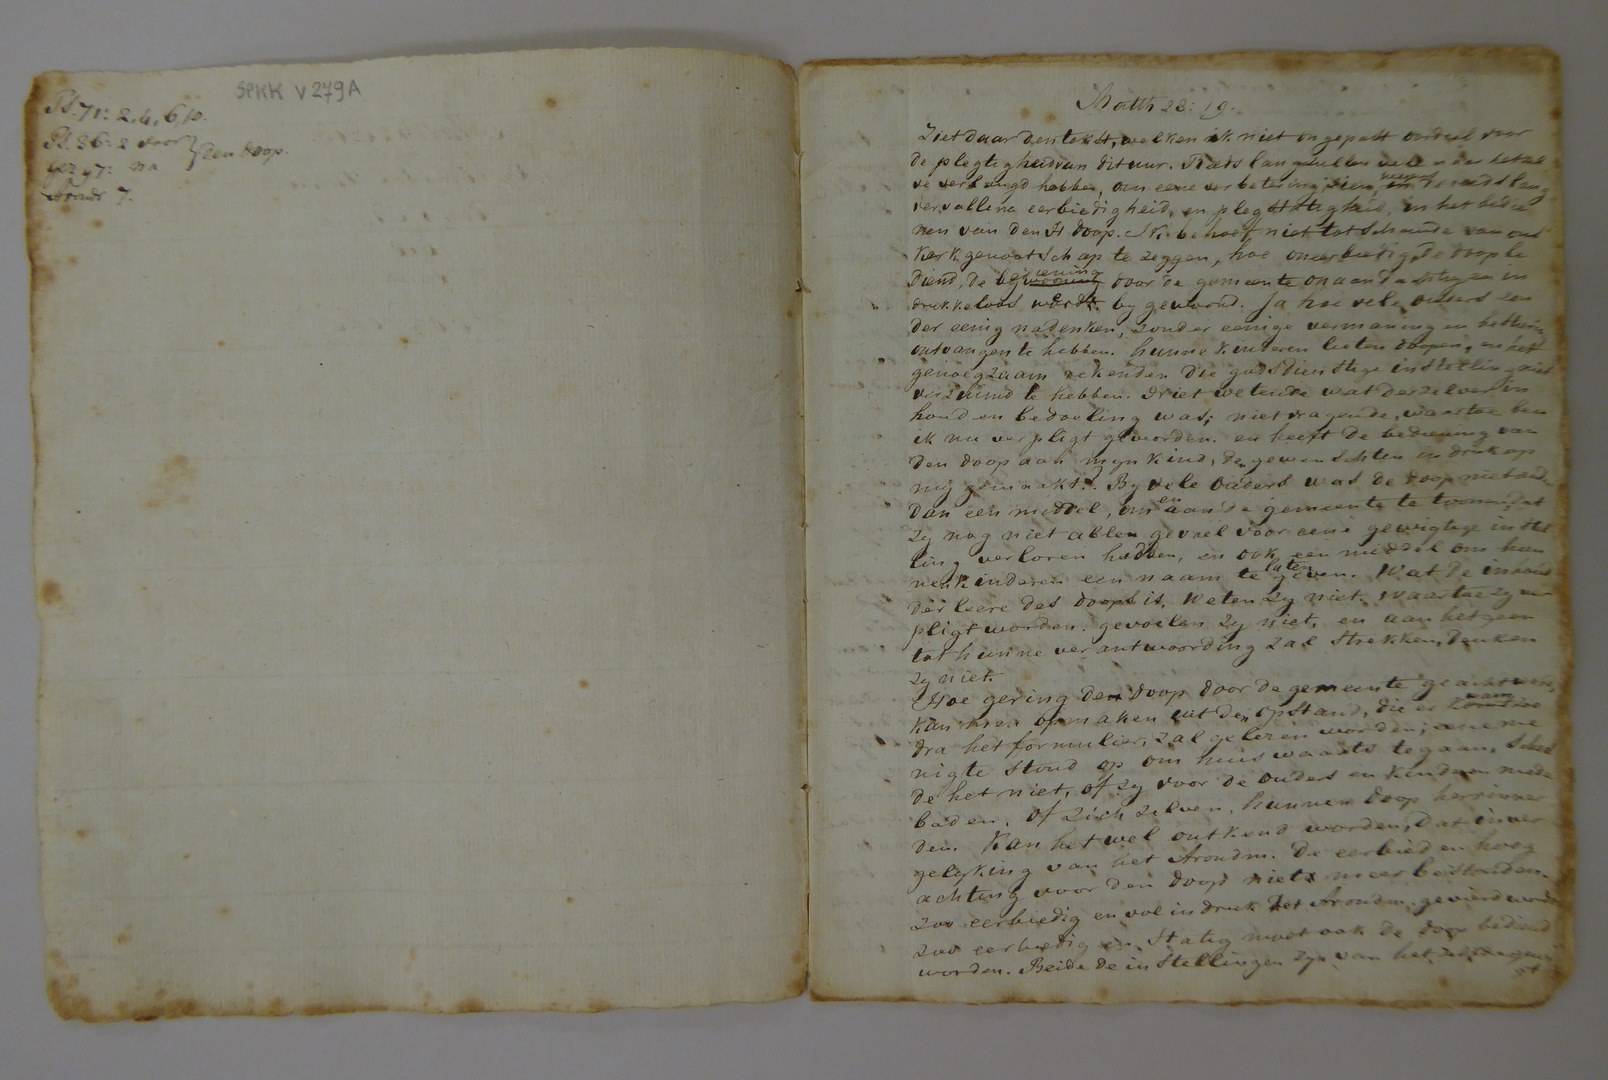 SPKK V279A
Ps. 71: 2, 4, 6, 10.
Ps. 86: 2 voor
Gez 97: na
den doop.
Avondz 7.
Matth 28: 19.
Ziet daar den tekst, welken ik niet ongepast oordeel voor
de plegtigheid van dit uur. Reeds lang zullen vele
ve verlangd hebben, om eene verbetering
vervallene eerbiedigheid, en plegtstatigheid, in het bedie
nen van den H doop. Ik behoef niet tot schande van ons
kerkgenootschap te zeggen, hoe oneerbiedig de doop be
diend, de bediening door de gemeente onaandachtig en in
drukkeloos werdt bygewoond. Ja hoe vele ouders zon
der eenig nadenken, zonder eenige vermaning en bestiering
ontvangen te hebben. hunne kinderen lieten doopen, en het
genoegzaam rekenden die godsdienstige instelling niet
verzuimd te hebben. Niet wetende wat derzelver in
houd en bedoeling was; niet vragende, waartoe ben
ik nu verpligt geworden. en heeft de bediening van
den doop aan myn kind, den gewenschten indruk op
my gemaakt? By vele ouders was de doop niet anders
dan een middel, om en aan de gemeente te toonen, dat
zy nog niet allen gevoel voor eene gewigtige instel
ling verloren hadden, en ook een middel om hun
ne kinderen een naam te laten geven. Wat de inhoud
der leere des doops is, weten zy niet. waartoe zy ver
pligt worden. gevoelen zy niet, en aan hetgeen
tot hunne verantwoording zal strekken, denken
zy niet.
Hoe gering den doop door de gemeente geacht werd,
kan men opmaken uit den opstand, die er
dra het formulier, zal gelezen worden; eene me
nigte stond op om huiswaarts te gaan. scheel
de het niet, of zy voor de ouders en kinderen mede
baden, of zich zelven, hunnen doop herinner
den. Kan het wel ontkend worden, dat in ver
gelyking van het Avondm. de eerbied en hoog
achting voor den doop niet meer bestonden.
Zoo eerbiedig en vol indruk het Avondm. gevierd wordt
zoo eerbiedig en statig moet ook de doop bediend
worden. Beide de instellingen zyn van het